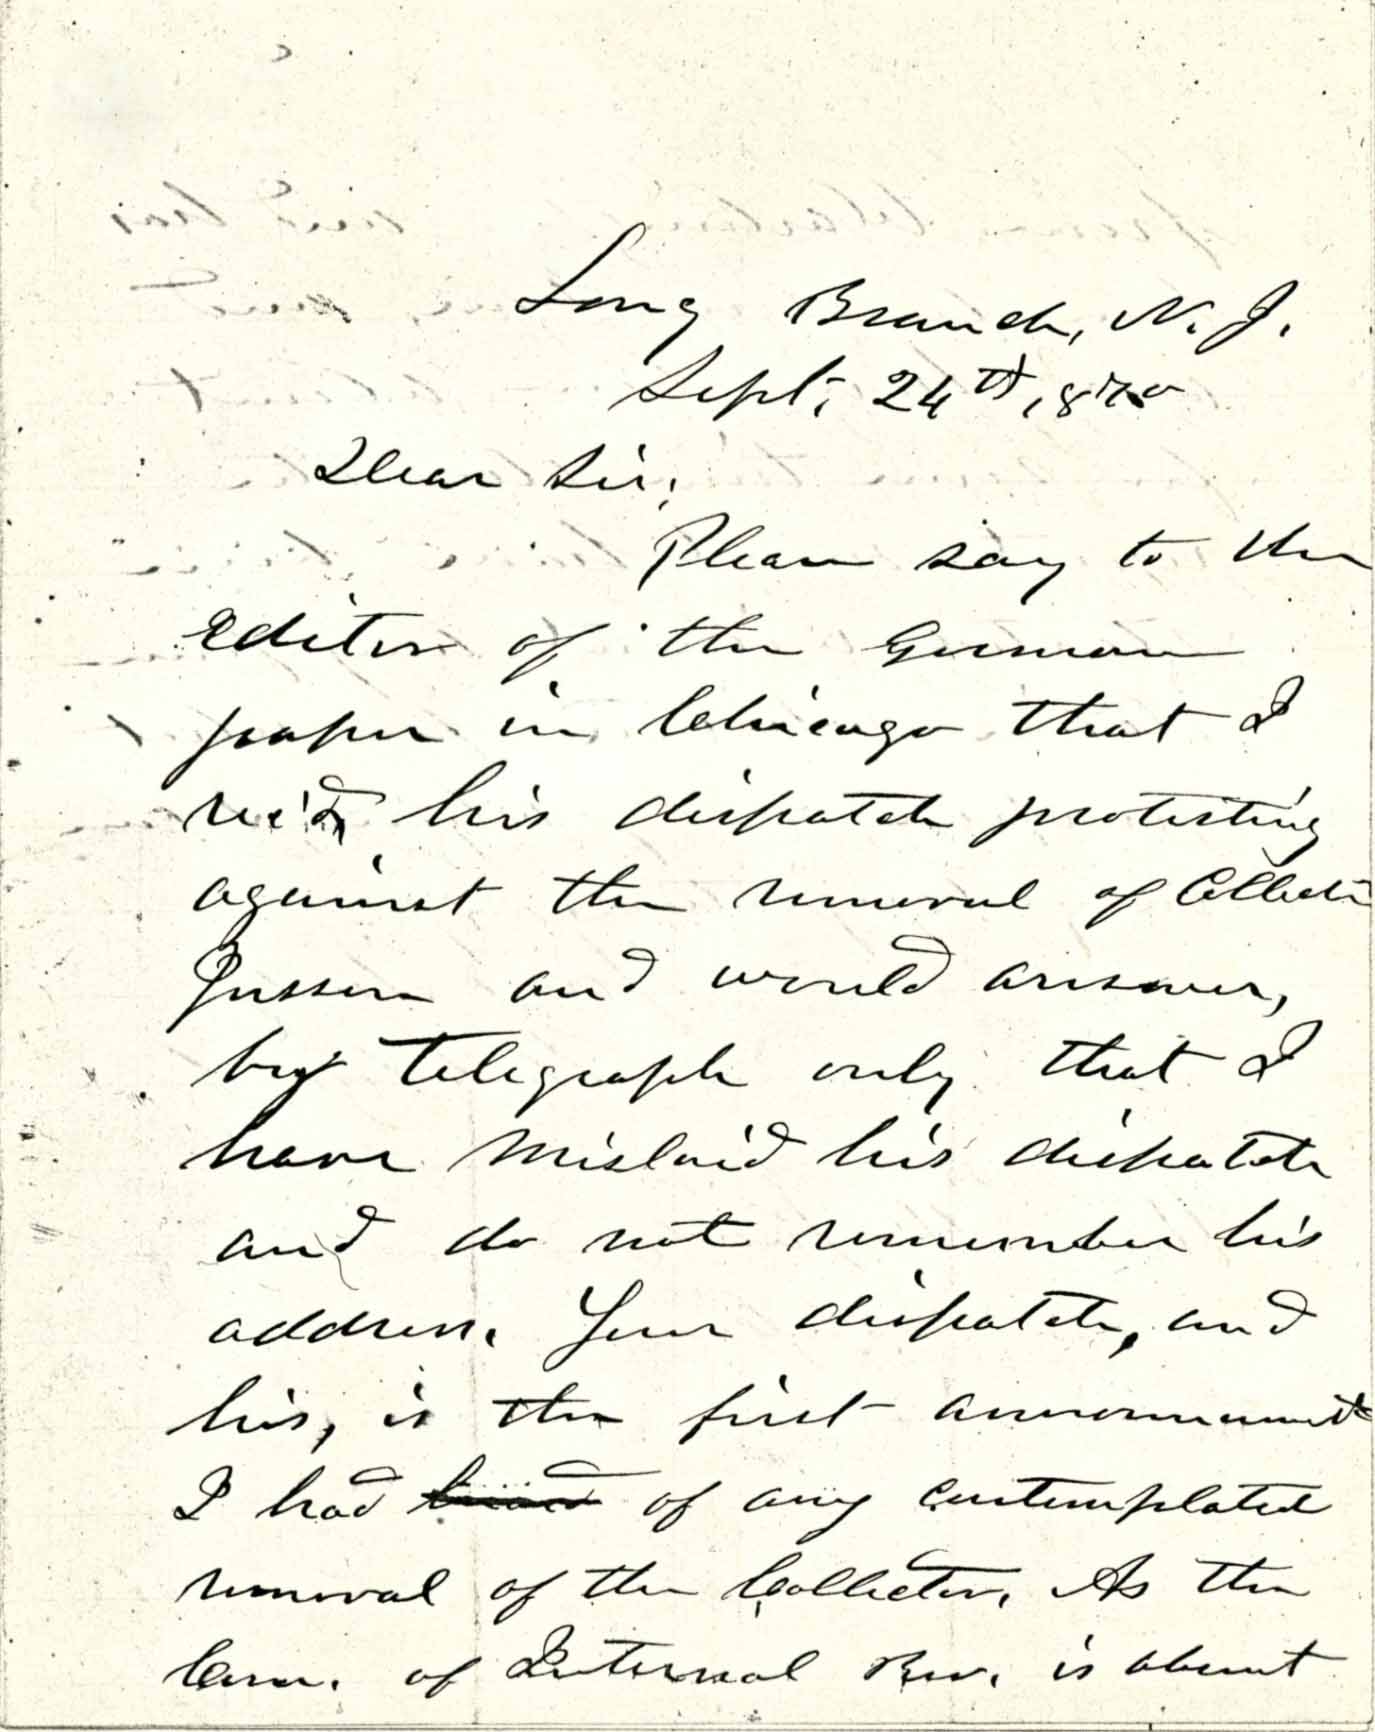 Long Branch, N. J.
Sept. 24th 1870
Dear Sir;
Please say to the
editor of the German
paper in Chicago that I
rec'd his dispatch protesting
against the removal of Collector
Jussen and would answer,
by telegraph only that I
have mislaid his dispatch
and do not remember his
address. Your dispatch, and
his, is the first announcement
I had of any contemplated
removal of the Collector. As the
Com. of Internal Rev. is absent